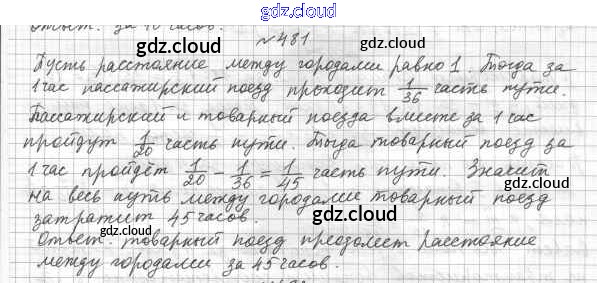 Ответ: за 40 часов.
gdz.cloud
№481
gdz.cloud
gdz.cloud
Пусть расстояние между городами равно 1. Тогда за
1 час пассажирский поезд проходит 1/36 часть пути.
gdz.cloud
Пассажирский и товарный поезда вместе за 1 час
пройдут 1/20 часть пути. Тогда товарный поезд за
gdz.cloud
1 час пройдёт 1/20 - 1/36 = 1/45 часть пути. Значит
на весь путь между городами товарный поезд
gdz.cloud
затратит 45 часов.
gdz.cloud
Ответ: товарный поезд преодолеет расстояние
между городами за 45 часов.
gdz.cloud